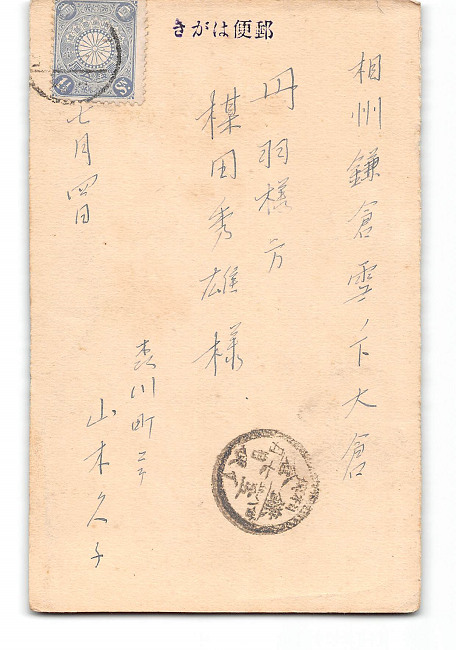 郵便はがき
相州鎌倉雪ノ下大倉
丹羽様方
楳田秀雄様
七月四日
森川町三四
山本久子